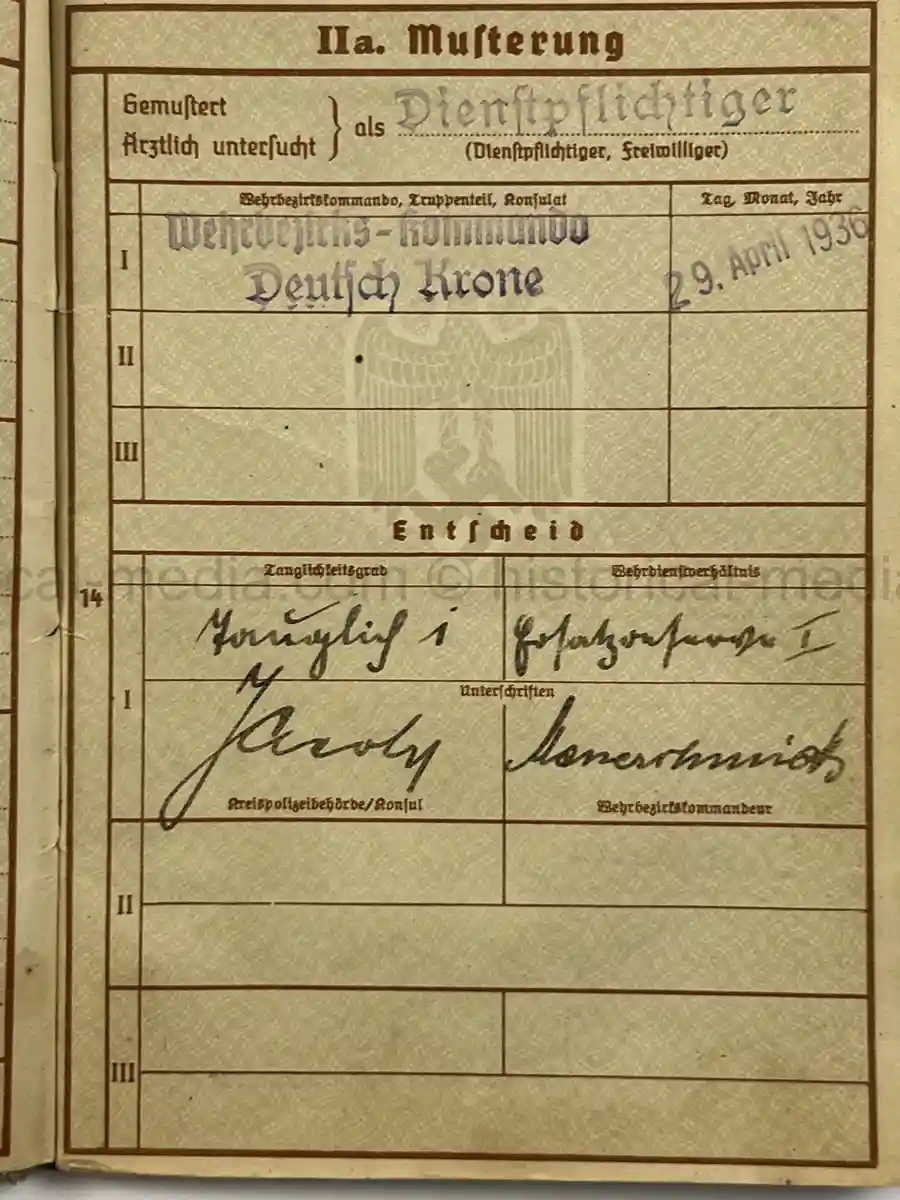 IIa. Muſterung
Gemuſtert
Ärztlich unterſucht } als Dienſtpflichtiger
(Dienſtpflichtiger, Freiwilliger)
Wehrbezirkskommando, Truppenteil, Konſulat
Tag, Monat, Jahr
I
Wehrbezirks-Kommando
Deutſch Krone
29. April 1936
II
III
Entſcheid
Tauglichkeitsgrad
Wehrdienſtverhältnis
cal-media.com © historical-media
14
Tauglich 1
Erſatzreſerve I
I
Unterſchriften
Kreispolizeibehörde/Konſul
Wehrbezirkskommandeur
II
III